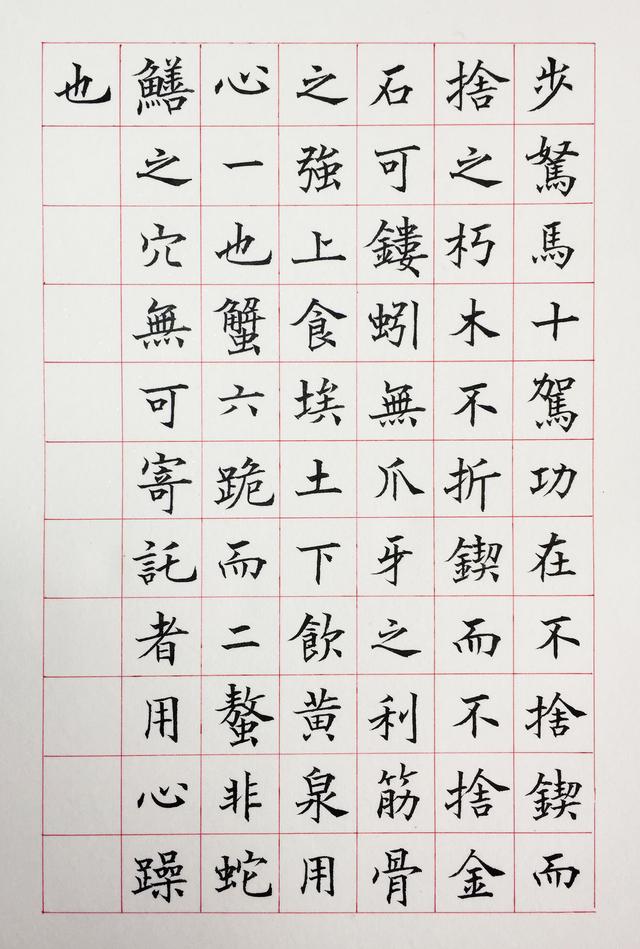 步駑馬十駕功在不捨鍥而
捨之朽木不折鍥而不捨金
石可鏤蚓無爪牙之利筋骨
之強上食埃土下飲黃泉用
心一也蟹六跪而二螯非蛇
鱔之穴無可寄託者用心躁
也